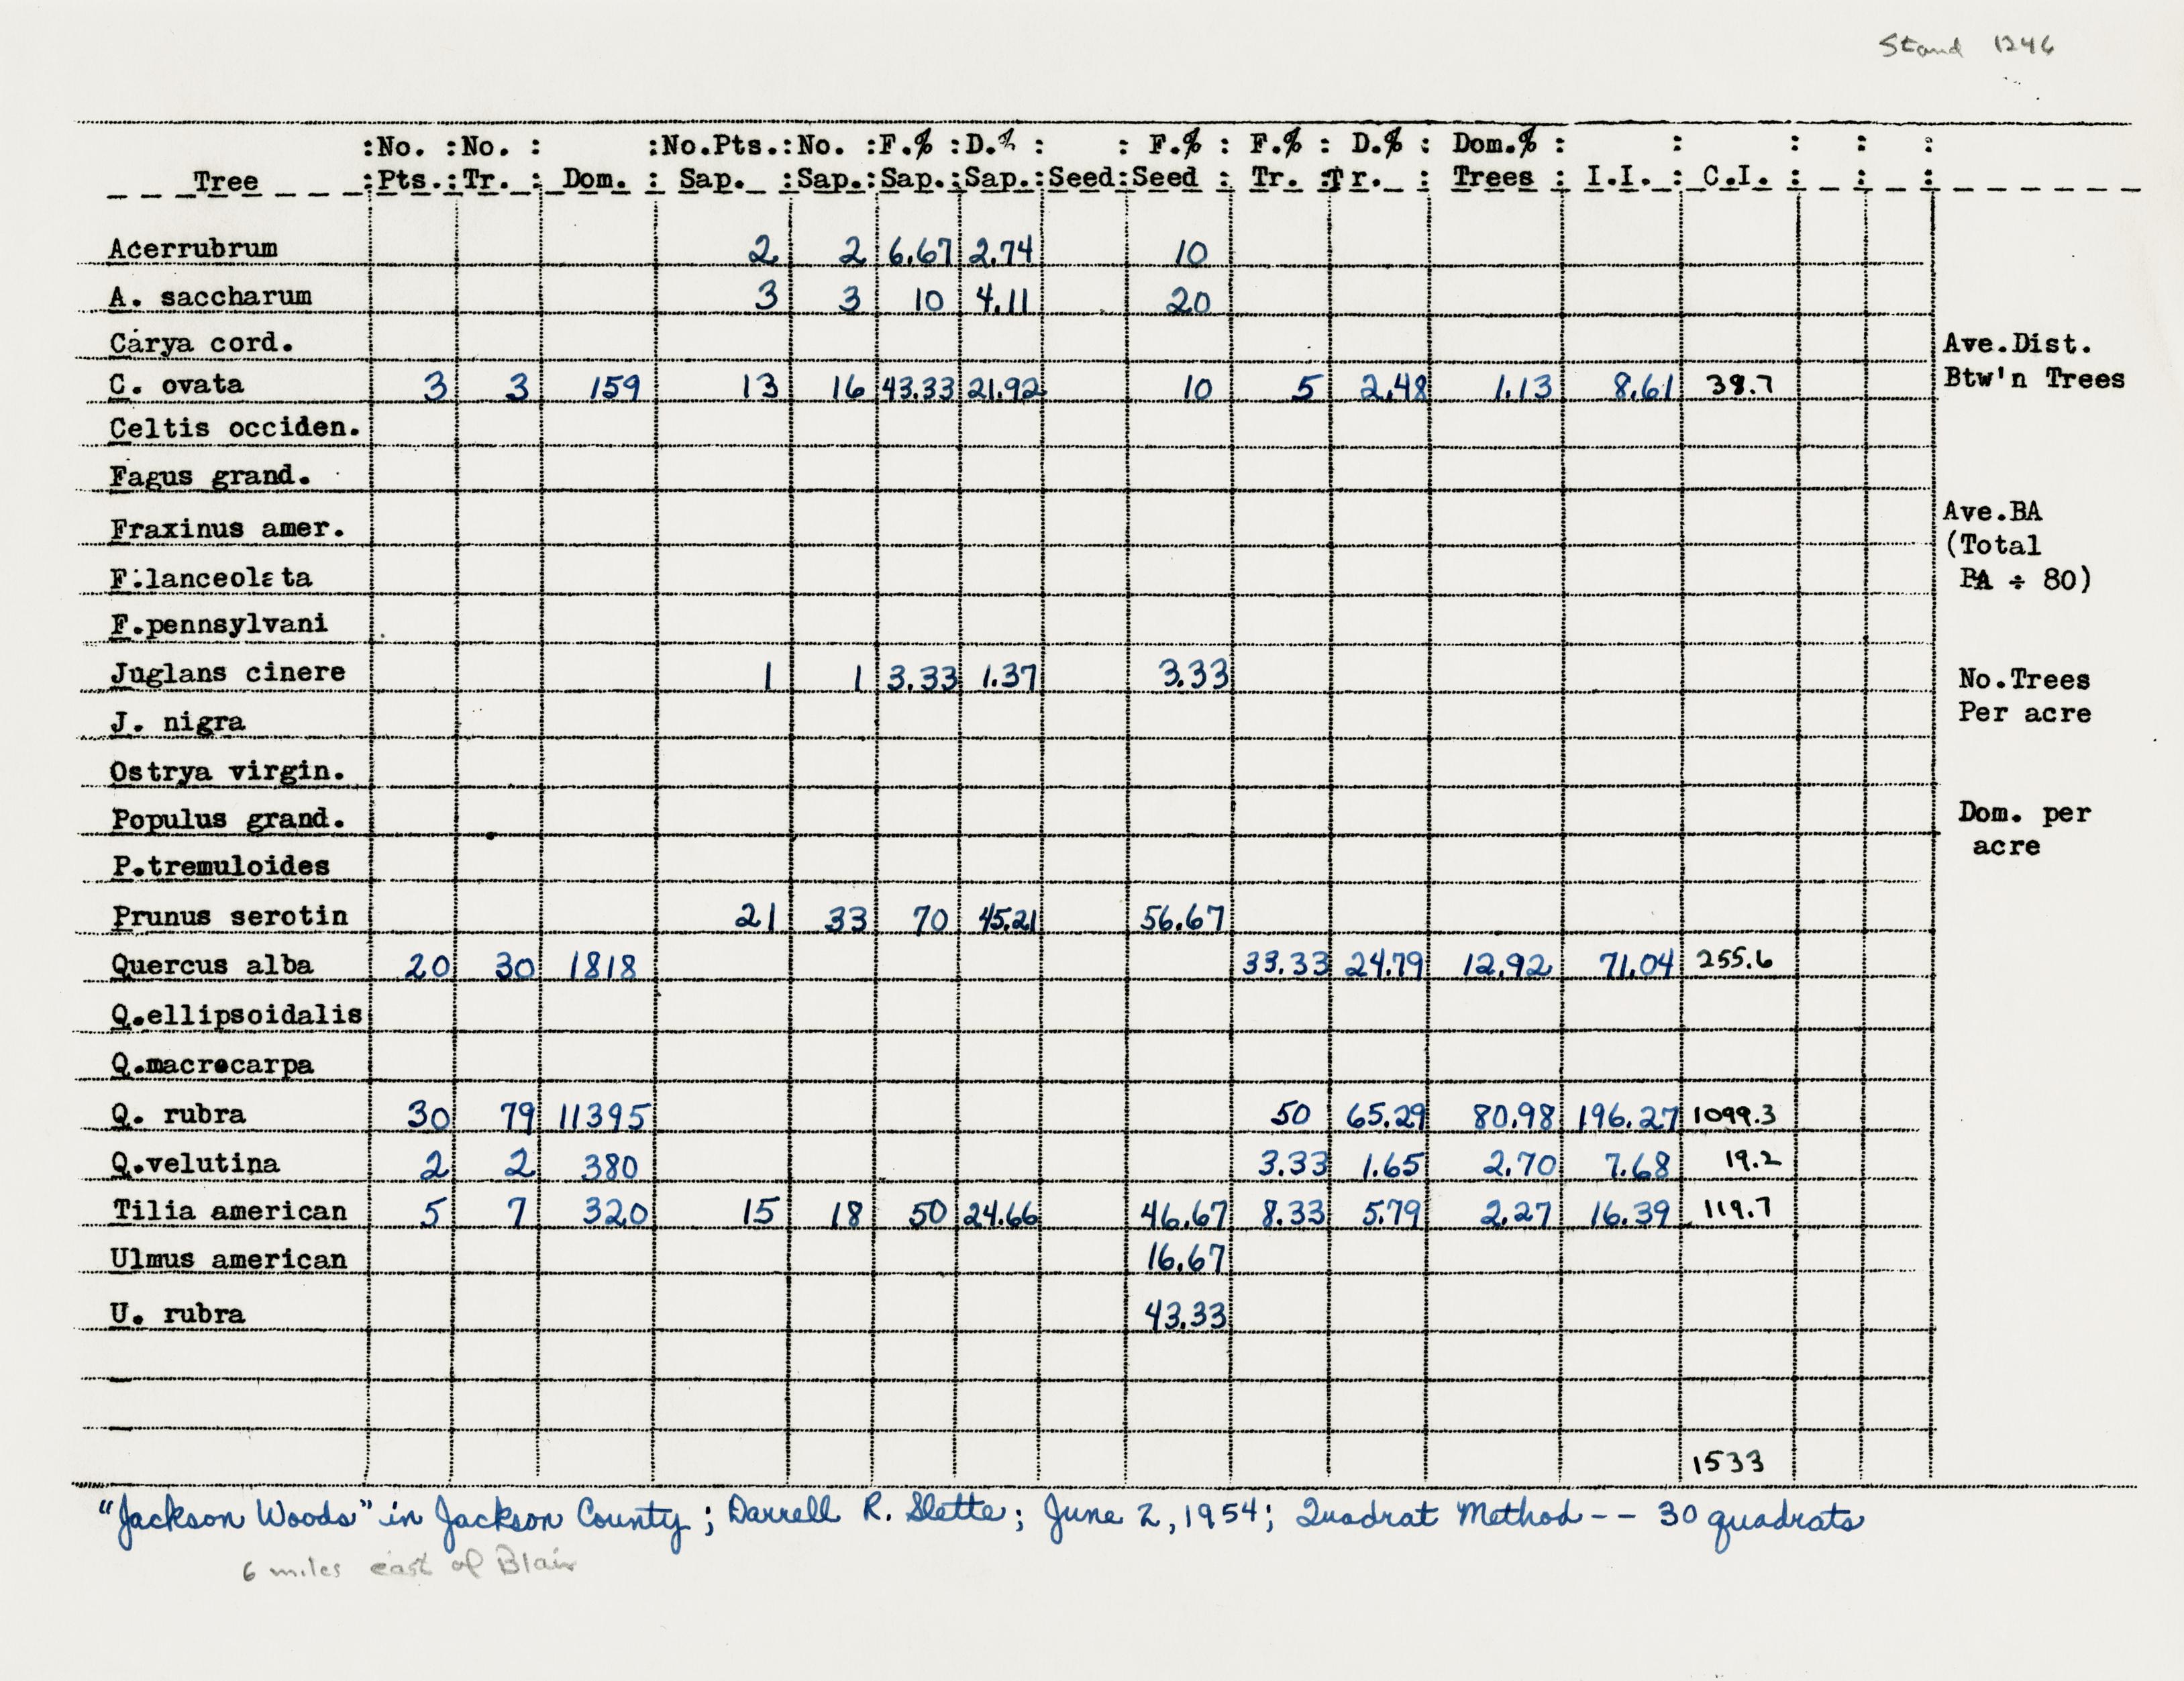 Stand 1246
:No. :No. : :No.Pts.:No. :F.% :D.% : : F.% : F.% : D.% : Dom.% : : : : :
Tree :Pts.:Tr. : Dom. : Sap. :Sap.:Sap.:Sap.:Seed:Seed : Tr. :Tr. : Trees : I.I. : C.I. : : :
Acerrubrum 2 2 6.67 2.74 10
A. saccharum 3 3 10 4.11 20
Carya cord.
Ave.Dist.
C. ovata 3 3 159 13 16 43.33 21.92 10 5 2.48 1.13 8.61 38.7
Btw'n Trees
Celtis occiden.
Fagus grand.
Ave.BA
Fraxinus amer.
(Total
F.lanceolata
BA ÷ 80)
F.pennsylvani
Juglans cinere 1 1 3.33 1.37 3.33
No.Trees
J. nigra
Per acre
Ostrya virgin.
Populus grand.
Dom. per
acre
P.tremuloides
Prunus serotin 21 33 70 45.21 56.67
Quercus alba 20 30 1818 33.33 24.79 12.92 71.04 255.6
Q.ellipsoidalis
Q.macrocarpa
Q. rubra 30 79 11395 50 65.29 80.98 196.27 1099.3
Q.velutina 2 2 380 3.33 1.65 2.70 7.68 19.2
Tilia american 5 7 320 15 18 50 24.66 46.67 8.33 5.79 2.27 16.39 119.7
Ulmus american 16.67
U. rubra 43.33
1533
"Jackson Woods" in Jackson County; Darrell R. Slette; June 2, 1954; Quadrat Method-- 30 quadrats
6 miles east of Blair